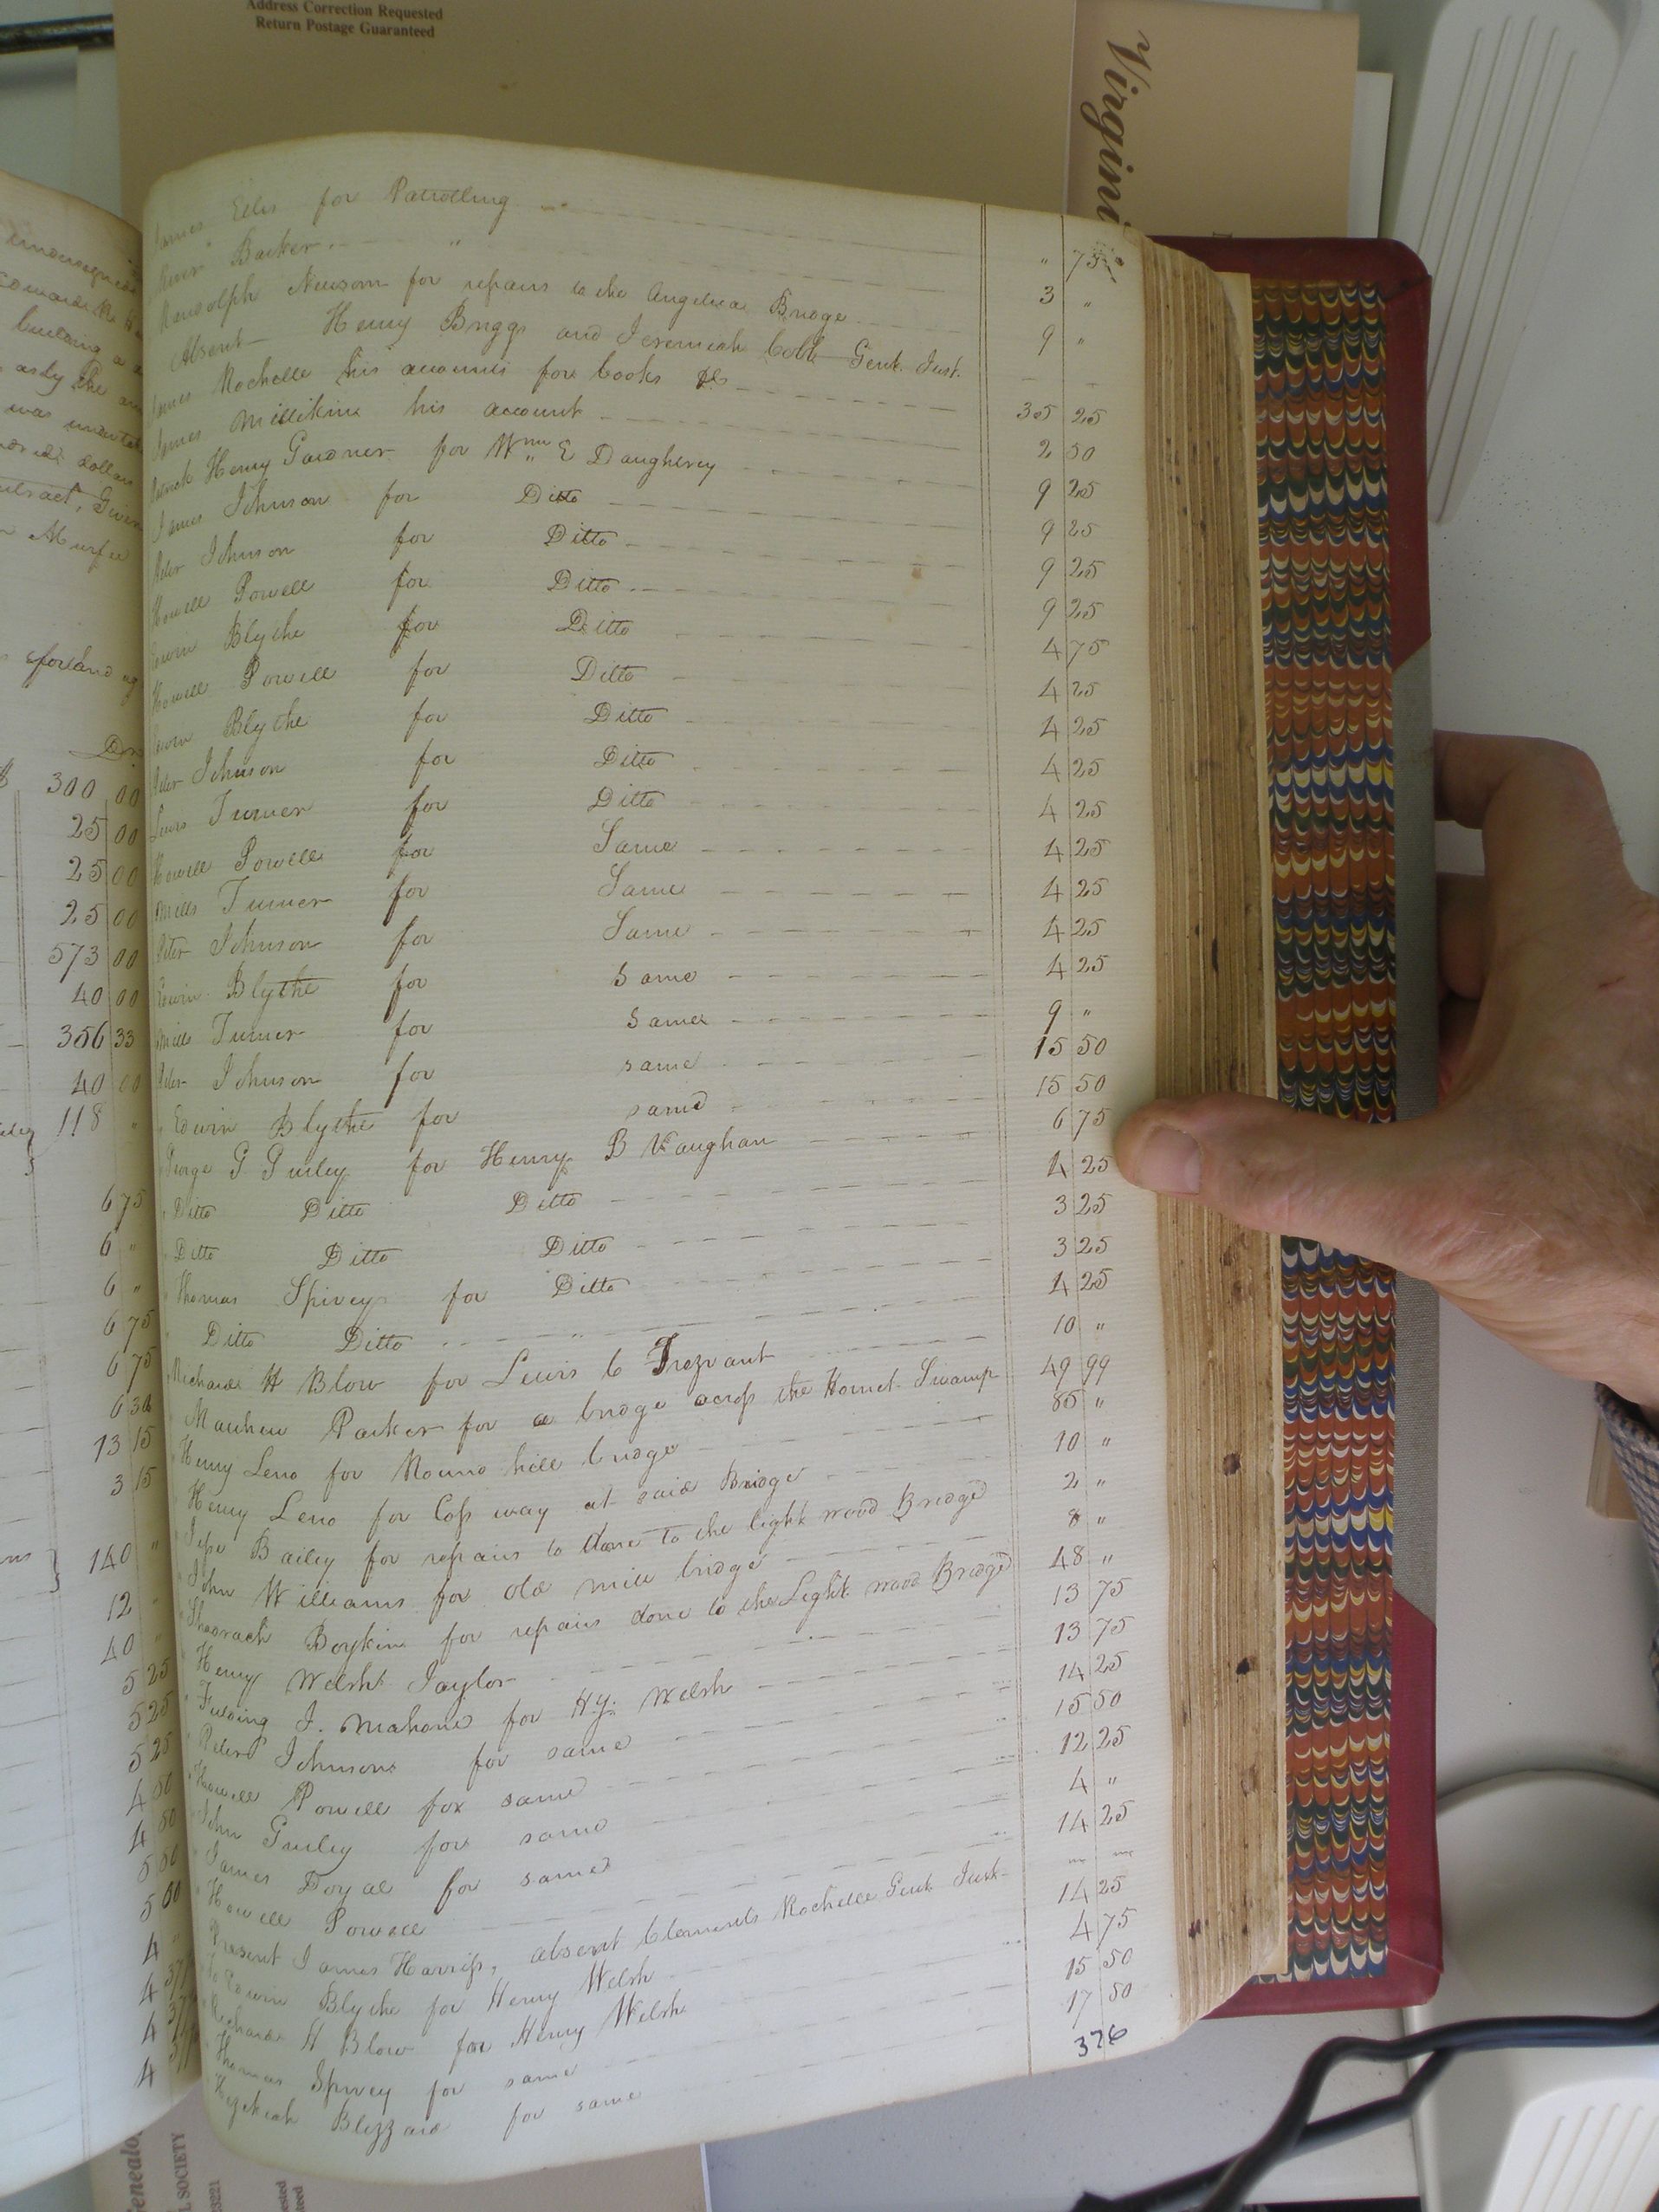 Address Correction Requested
Return Postage Guaranteed
Virgini
James Eeles for Patrolling " 75
Barker " 3 "
Randolph Newsom for repairs to the Angelica Bridge 9 "
Absent Henry Briggs and Jeremiah Cobb Gent. Just.
James Rochelle his accounts for books &c 305 25
James Millikin his account 2 50
Patrick Henry Gardner for Wm E Daughtrey 9 25
James Johnson for Ditto 9 25
Peter Johnson for Ditto 9 25
Howell Powell for Ditto 9 25
Edwin Blythe for Ditto 4 75
Howell Powell for Ditto 4 25
Edwin Blythe for Ditto 4 25
Peter Johnson for Ditto 4 25
Lewis Turner for Ditto 4 25
Howell Powell for Same 4 25
Mills Turner for Same 4 25
Peter Johnson for Same 4 25
Edwin Blythe for Same 4 25
Mills Turner for Same 9 "
Peter Johnson for same 15 50
" Edwin Blythe for same 15 50
George G Gurley for Henry B Vaughan 6 75
" Ditto Ditto Ditto 4 25
" Ditto Ditto Ditto 3 25
" Thomas Spivey for Ditto 3 25
" Ditto Ditto " 4 25
" Richard H Blow for Lewis C Trezvant 10 "
" Mathew Parker for a bridge across the Hornet Swamp 49 99
" Henry Leno for Round hill bridge 85 "
" Henry Leno for Cossway at said Bridge 10 "
" Jesse Bailey for repairs to done to the light wood Bridge 2 "
" John Williams for old mill bridge 8 "
" Shadrach Boykin for repairs done to the Light wood Bridge 48 "
" Henry Welsh Jaylor 13 75
" Fielding J. Mahone for Hy. Welsh 13 75
" Peter Johnson for same 14 25
" Howell Powell for same 15 50
" John Gurley for same 12 25
" James Doyal for same 4 "
" Howell Powell 14 25
" Present James Harriss, absent Clements Rochelle Gent Just
" to Edwin Blythe for Henry Welsh 14 25
" Richard H Blow for Henry Welsh 4 75
" Thomas Spivey for same 15 50
" Hezekiah Blizzard for same 17 50
376
for land
300 00
25 00
25 00
25 00
573 00
40 00
356 33
40 00
118 "
6 75
6 "
6 "
6 75
6 75
13 15
3 15
140 "
12 "
40 "
5 25
5 25
5 25
4 50
4 50
5 50
5 00
4 "
L SOCIETY